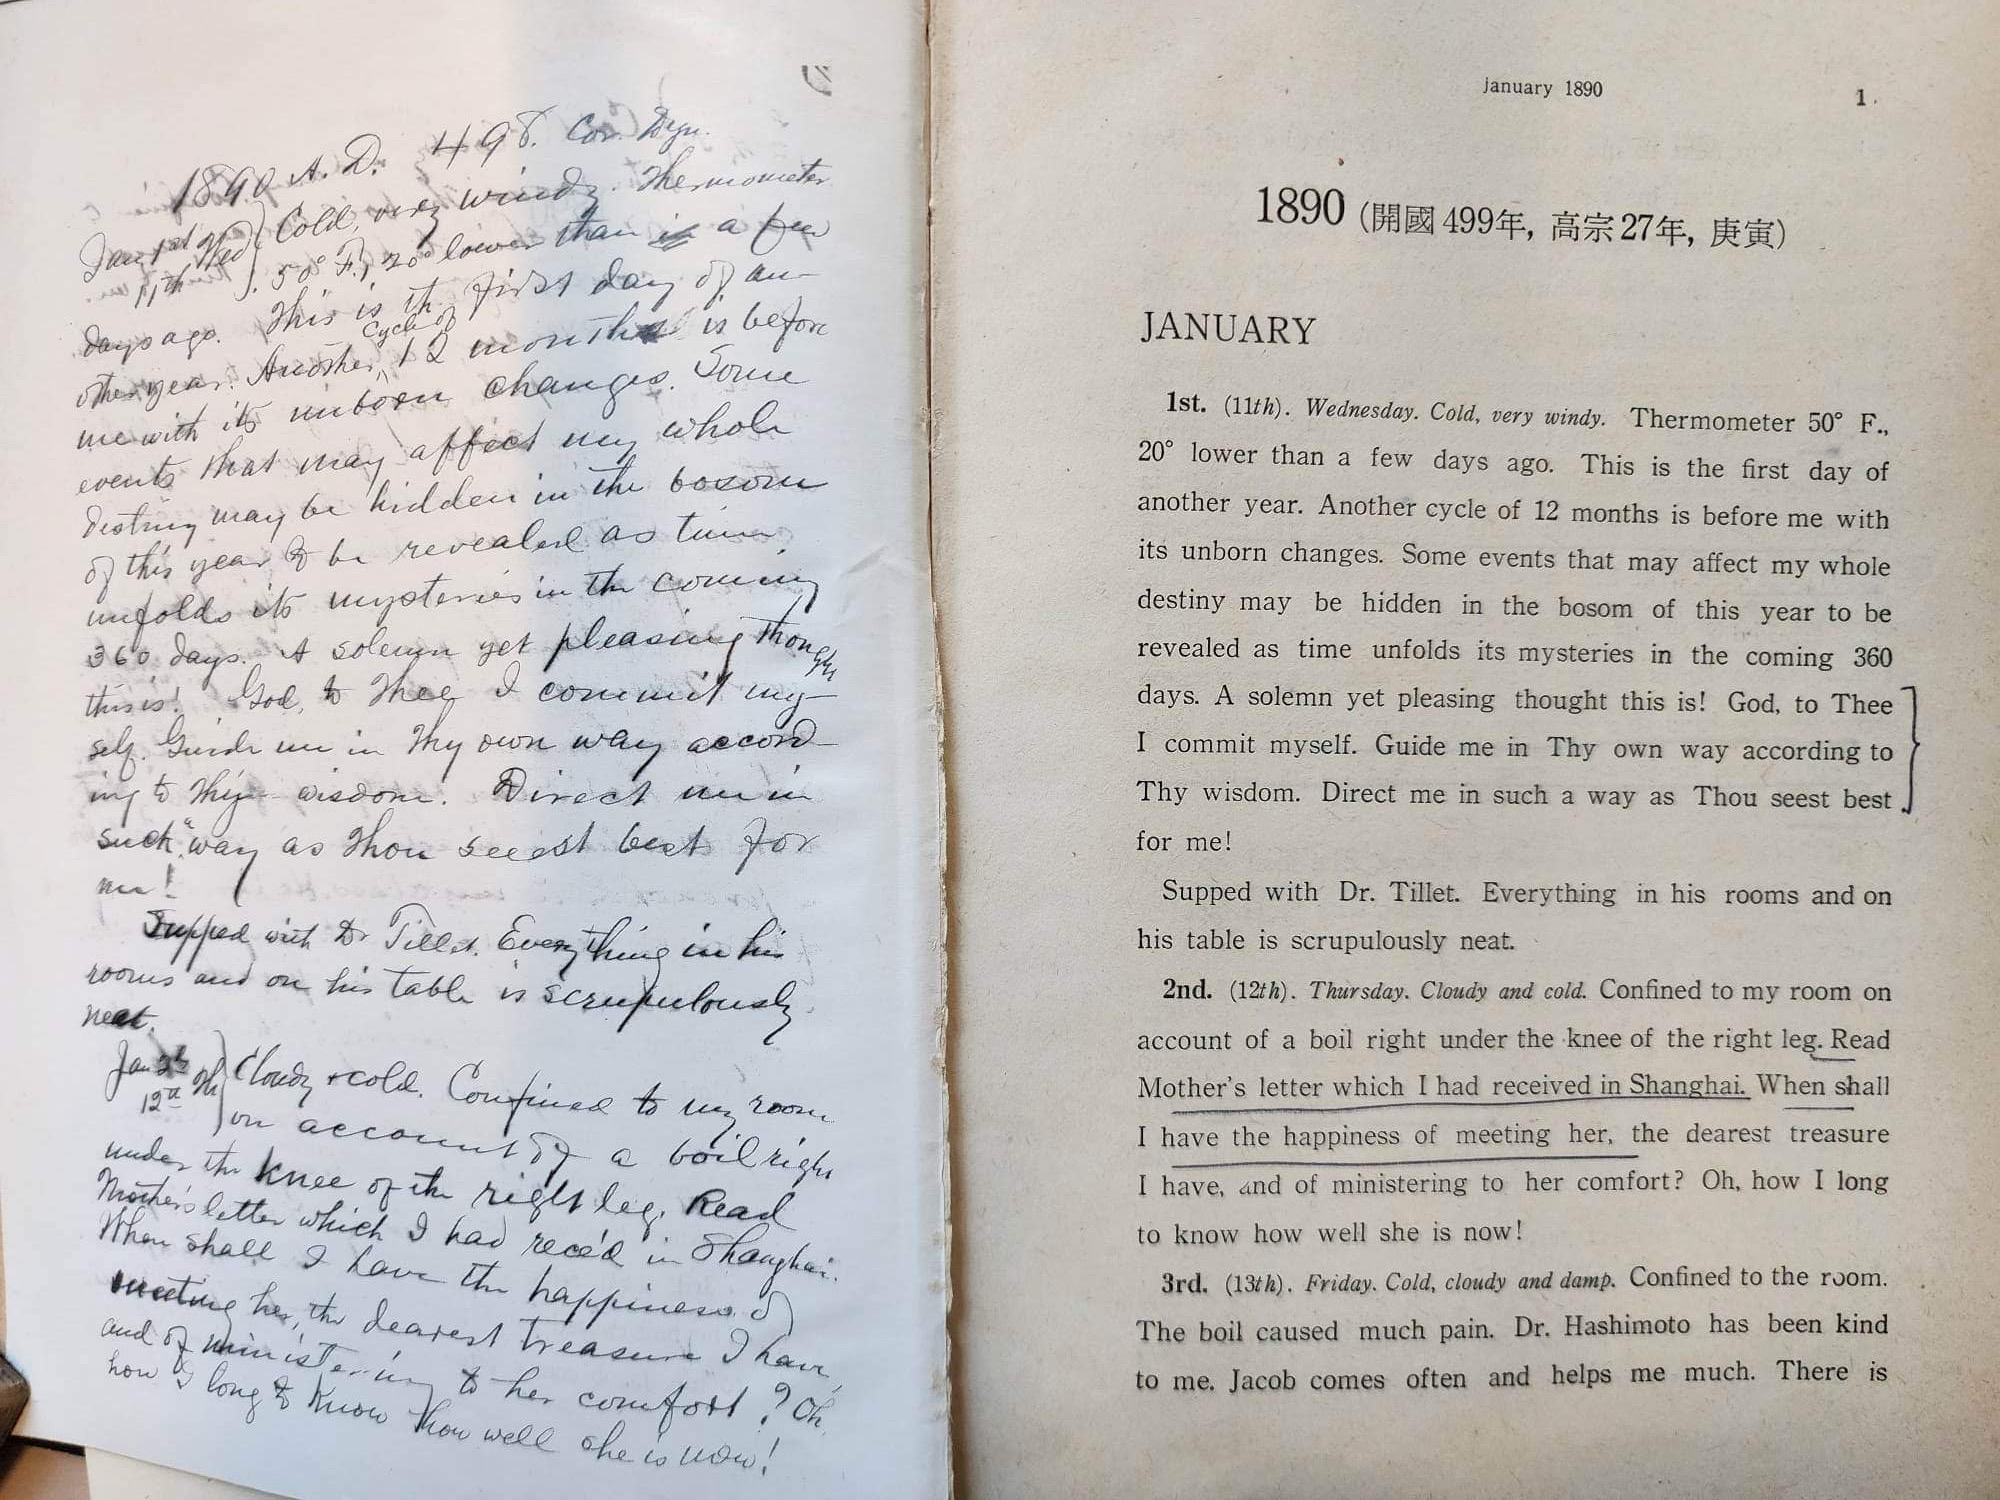 1890 A.D. 498. Cor. Dyn.
Jan 1st Wed } Cold, very windy. Thermometer
11th } 50° F., 20° lower than a few
days ago. This is th first day of an-
other year. Another cycle of 12 months is before
me with its unborn changes. Some
events that may affect my whole
destiny may be hidden in the bosom
of this year to be revealed as time
unfolds its mysteries in the coming
360 days. A solemn yet pleasing thought
this is! God, to Thee I commit my-
self. Guide me in Thy own way accord-
ing to Thy wisdom. Direct me in
such a way as Thou seest best for
me!
Supped with Dr Tillet. Everything in his
rooms and on his table is scrupulously
neat.
Jan 2d Th } Cloudy + cold. Confined to my room
12th } on account of a boil right
under the knee of the right leg. Read
Mother's letter which I had rece'd in Shanghai.
When shall I have the happiness of
meeting her, the dearest treasure I have,
and of ministering to her comfort? Oh,
how I long to know how well she is now!
January 1890 1
1890 (開國499年, 高宗27年, 庚寅)
JANUARY
1st. (11th). Wednesday. Cold, very windy. Thermometer 50° F.,
20° lower than a few days ago. This is the first day of
another year. Another cycle of 12 months is before me with
its unborn changes. Some events that may affect my whole
destiny may be hidden in the bosom of this year to be
revealed as time unfolds its mysteries in the coming 360
days. A solemn yet pleasing thought this is! God, to Thee
I commit myself. Guide me in Thy own way according to
Thy wisdom. Direct me in such a way as Thou seest best
for me!
Supped with Dr. Tillet. Everything in his rooms and on
his table is scrupulously neat.
2nd. (12th). Thursday. Cloudy and cold. Confined to my room on
account of a boil right under the knee of the right leg. Read
Mother's letter which I had received in Shanghai. When shall
I have the happiness of meeting her, the dearest treasure
I have, and of ministering to her comfort? Oh, how I long
to know how well she is now!
3rd. (13th). Friday. Cold, cloudy and damp. Confined to the room.
The boil caused much pain. Dr. Hashimoto has been kind
to me. Jacob comes often and helps me much. There is